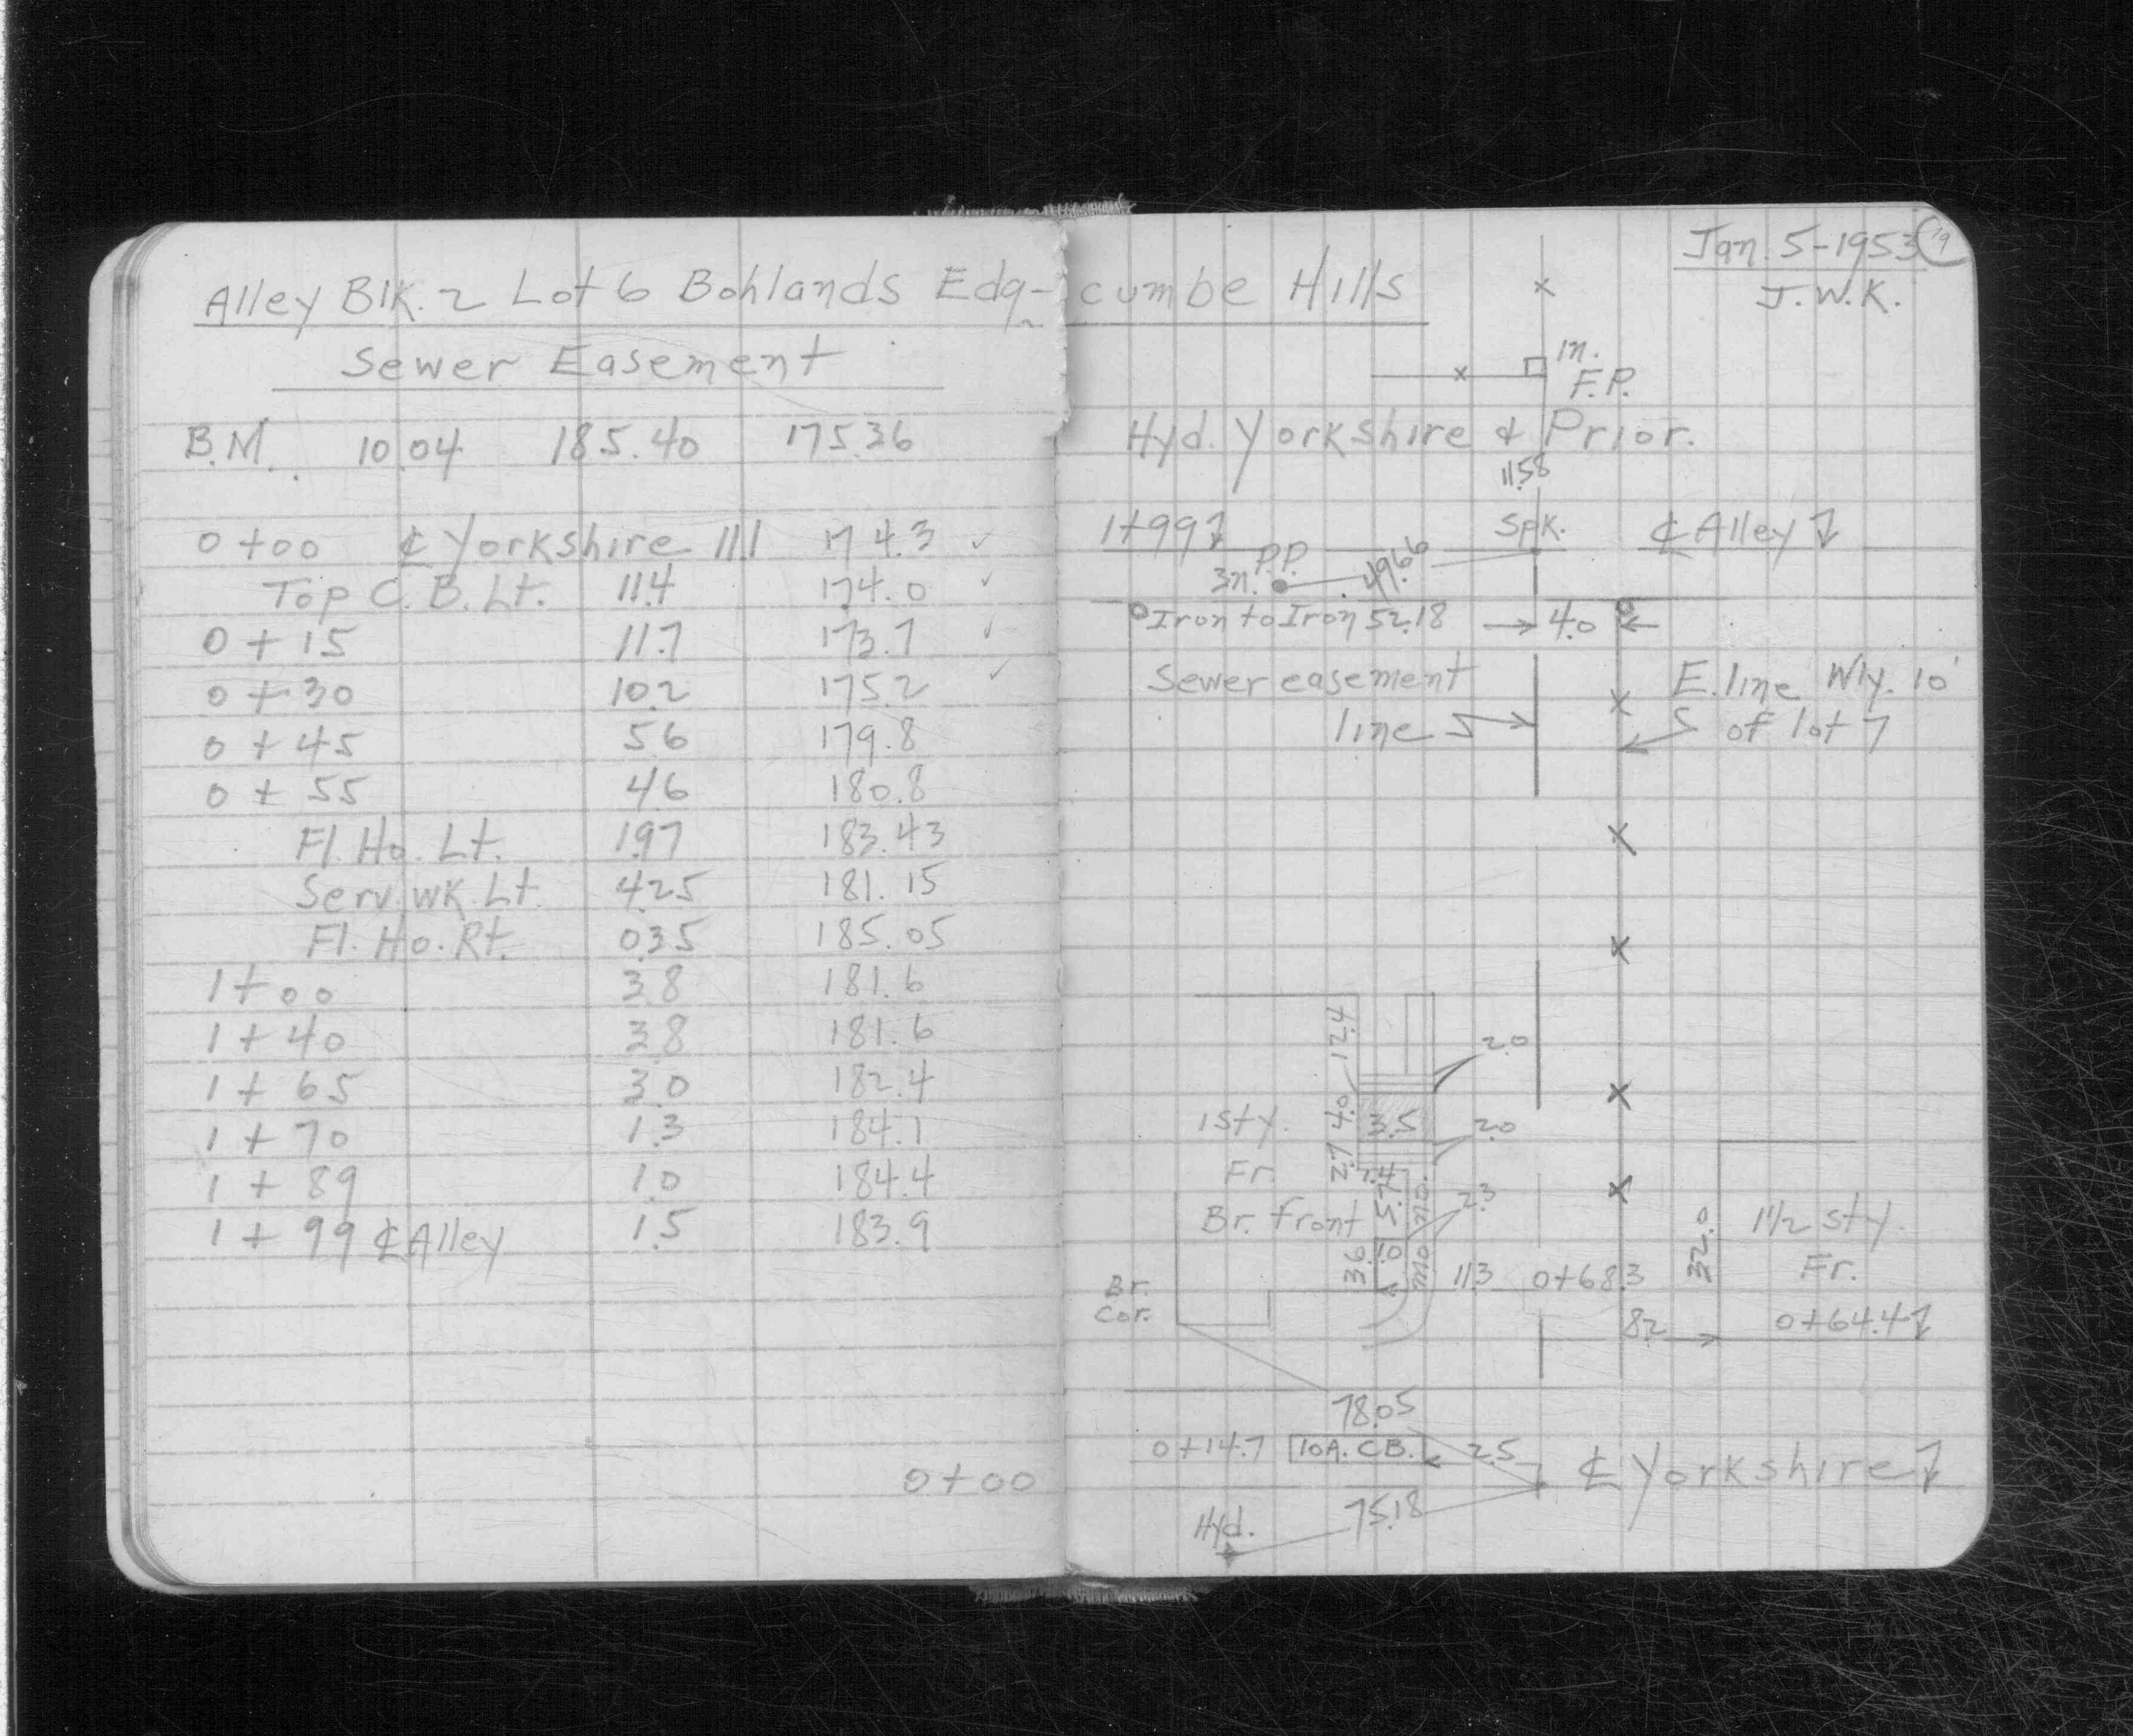 Alley Blk. 2 Lot 6 Bohlands Edg-cumbe Hills
Sewer Easement
B.M. 10.04 185.40 175.36
0+00 ℄ Yorkshire 11.1 174.3 ✓
Top C.B. Lt. 11.4 174.0 ✓
0+15 11.7 173.7 ✓
0+30 10.2 175.2 ✓
0+45 5.6 179.8
0+55 4.6 180.8
Fl. Ho. Lt. 1.97 183.43
Serv. WK. Lt. 4.25 181.15
Fl. Ho. Rt. 0.35 185.05
1+00 3.8 181.6
1+40 3.8 181.6
1+65 3.0 182.4
1+70 1.3 184.1
1+89 1.0 184.4
1+99 ℄ Alley 1.5 183.9
0+00
Jan. 5-1953 19
J.W.K.
In.
F.P.
Hyd. Yorkshire & Prior.
11.58
1+99 Spk. ℄ Alley
P.P.
3n. 49.66
Iron to Iron 52.18 4.0
Sewer easement
line
E. line Wly. 10'
of lot 7
12.4
2.0
4.0
1 sty. 3.5 2.0
2.7
Fr. 7.4
5.7 2.3
Br. front
32.0 1 1/2 sty.
Fr.
3.6 1.0 11.3 0+68.3
Br.
Cor.
8.2 0+64.4
78.05
0+14.7 10A. C.B. 2.5 ℄ Yorkshire
75.18
Hyd.